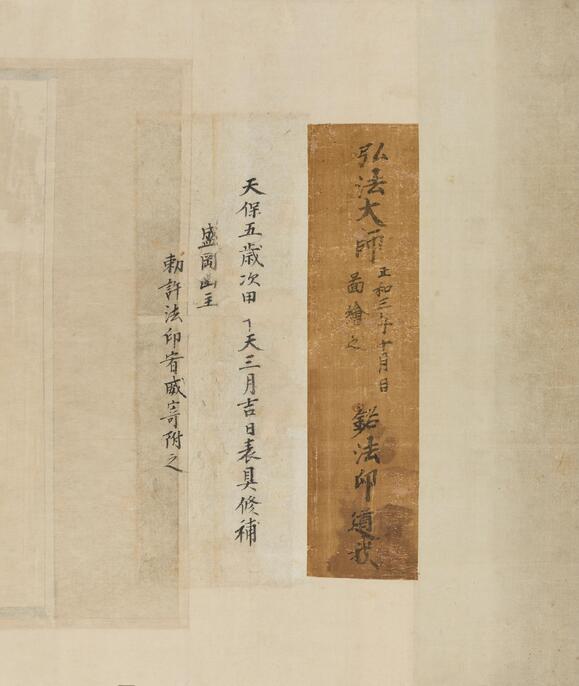 弘法大師
正和三年十月日
圖繪之
法印道我
天保五歳次甲天三月吉日表具修補
盛岡
勅許法印宥威寄附之